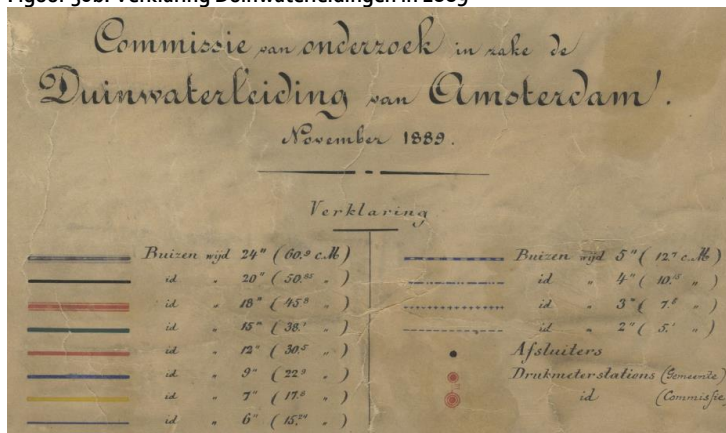 Commissie van onderzoek in zake de
Duinwaterleiding van Amsterdam.
November 1889.
Verklaring
Buizen wijd 24" (60.9 c.M)
id " 20" (50.85 ")
id " 18" (45.8 ")
id " 15" (38.1 ")
id " 12" (30.5 ")
id " 9" (22.9 ")
id " 7" (17.8 ")
id " 6" (15.24 ")
Buizen wijd 5" (12.7 c.M)
id " 4" (10.15 ")
id " 3" (7.6 ")
id " 2" (5.1 ")
Afsluiters
Drukmeterstations (Gemeente)
id (Commissie